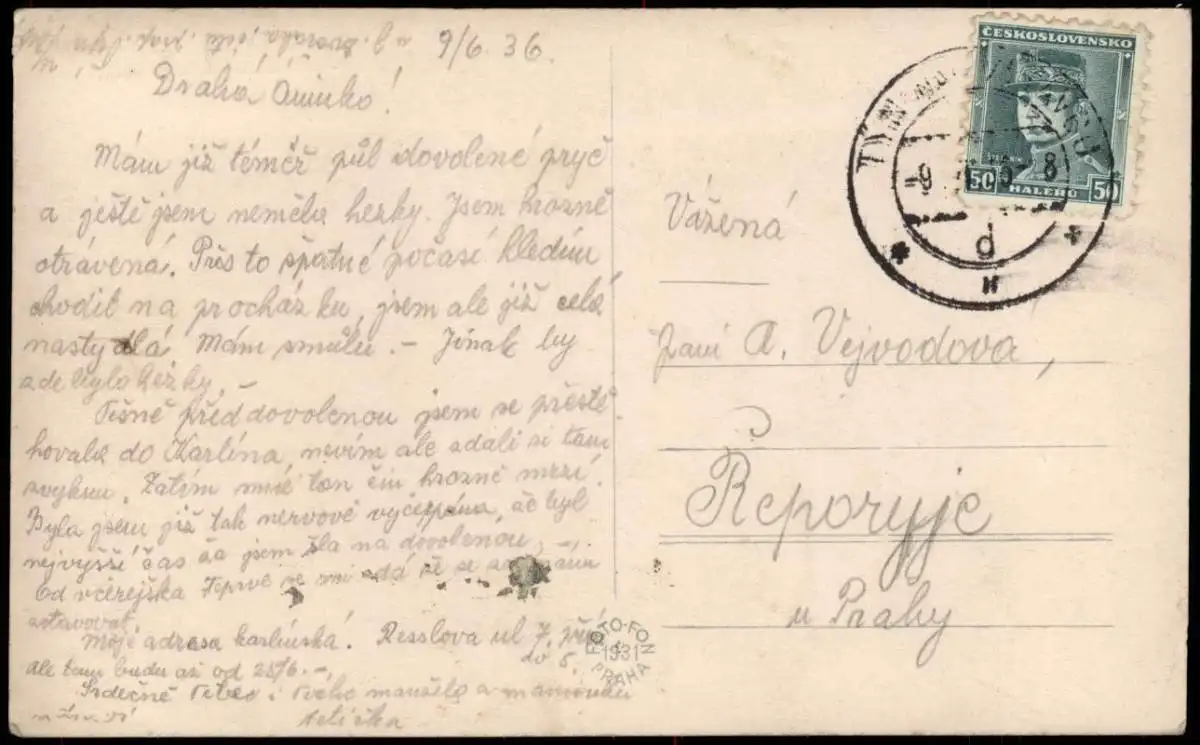 9/6.36.
Drahá Áninko!
Mám již téměř půl dovolené pryč
a ještě jsem neměla hezky. Jsem hrozně
otrávená. Přes to špatné počasí hledím
chodit na procházku, jsem ale již celá
nastydlá. Mám smůlu. – Jinak by
zde bylo hezky. –
Těsně před dovolenou jsem se přestě-
hovala do Karlína, nevím ale zdali si tam
zvyknu. Zatím mně ten čin hrozně mrzí.
Byla jsem již tak nervově vyčerpána, že byl
nejvyšší čas že jsem šla na dovolenou, –.
Od včerejška teprve se mi zdá že se
zotavovat.
Moje adresa karlínská. Resslova ul 7.
do 5.
ale tam budu až od 28/6. –,
Srdečně Tebe i Tvého manžela a maminku
tetička
ČESKOSLOVENSKO
50 HALÉŘŮ 50
TÝN NAD VLTAVOU
9 36 8
d
Vážená
Paní A. Vejvodova,
Řeporyje
u Prahy
FOTO-FON
1931
PRAHA